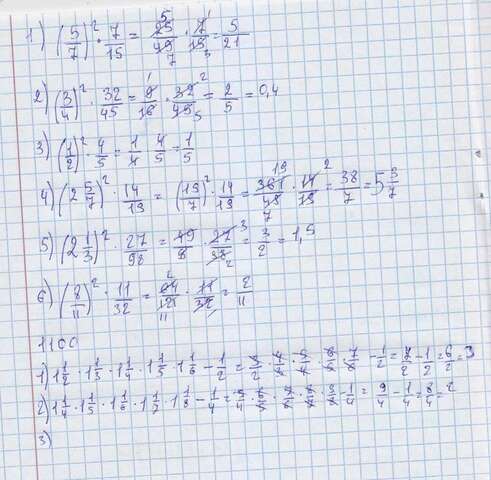 1) (5/7)² · 7/15 = 25/49 · 7/15 = 5/21
2) (3/4)² · 32/45 = 9/16 · 32/45 = 2/5 = 0,4
3) (1/2)² · 4/5 = 1/4 · 4/5 = 1/5
4) (2 5/7)² · 14/19 = (19/7)² · 14/19 = 361/49 · 14/19 = 38/7 = 5 3/7
5) (2 1/3)² · 27/98 = 49/9 · 27/98 = 3/2 = 1,5
6) (8/11)² · 11/32 = 64/121 · 11/32 = 2/11
1100
1) 1 1/2 · 1 1/3 · 1 1/4 · 1 1/5 · 1 1/6 - 1/2 = 3/2 · 4/3 · 5/4 · 6/5 · 7/6 - 1/2 = 7/2 - 1/2 = 6/2 = 3
2) 1 1/4 · 1 1/5 · 1 1/6 · 1 1/7 · 1 1/8 - 1/4 = 5/4 · 6/5 · 7/6 · 8/7 · 9/8 - 1/4 = 9/4 - 1/4 = 8/4 = 2
3)